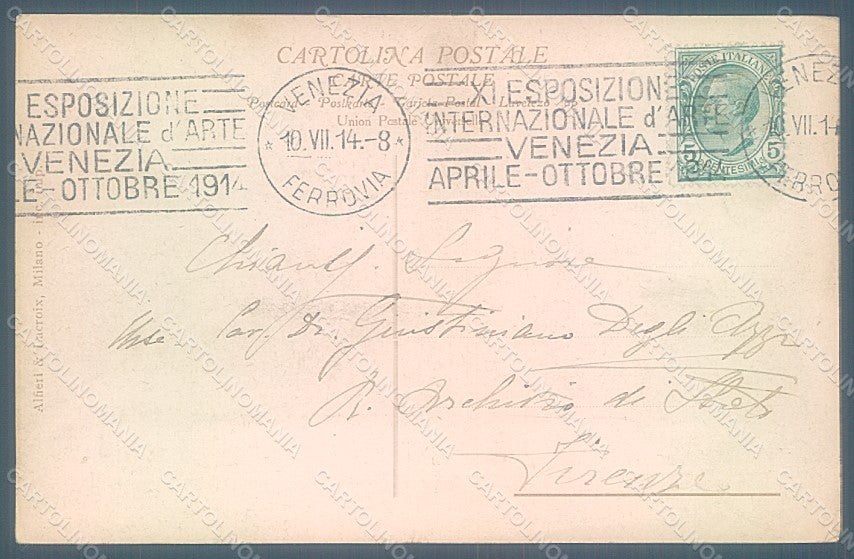 CARTOLINA POSTALE
CARTE POSTALE
Postcard Postkarte Tarjeta Postal
Union Postale
ESPOSIZIONE
NAZIONALE d'ARTE
VENEZIA
LE-OTTOBRE 1914
VENEZIA
* 10.VII.14.-8 *
FERROVIA
XI ESPOSIZIONE
INTERNAZIONALE d'ARTE
VENEZIA
APRILE-OTTOBRE
POSTE ITALIANE
5 CENTESIMI 5
VENEZI
10.VII.14
FERRO
Signore
Cav. Dr. Giustiniano Degli Azzi
R. Archivio di Stato
Firenze
Alfieri & Lacroix, Milano
CARTOLINOMANIA